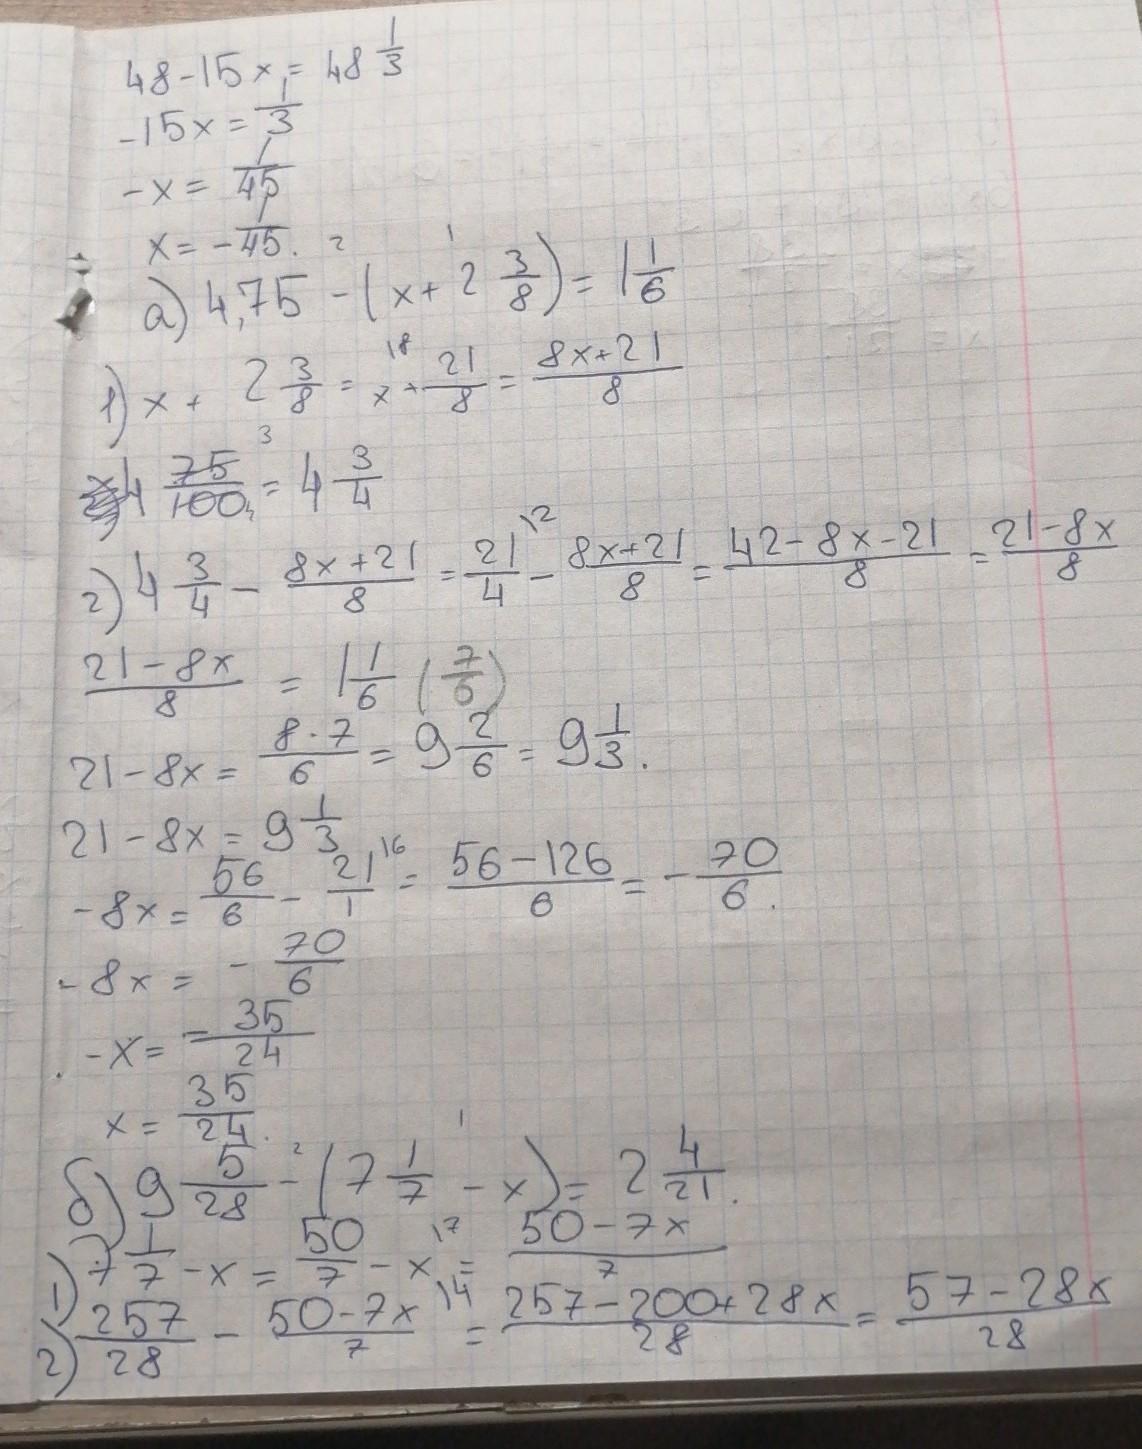 48-15x = 48 1/3
-15x = 1/3
-x = 1/45
x = - 1/45.
а) 4,75 - (x + 2 3/8) = 1 1/6
1) x + 2 3/8 = x + 21/8 = (8x+21)/8
4 75/100 = 4 3/4
2) 4 3/4 - (8x+21)/8 = 21/4 - (8x+21)/8 = (42-8x-21)/8 = (21-8x)/8
(21-8x)/8 = 1 1/6 (7/6)
21-8x = (8·7)/6 = 9 2/6 = 9 1/3.
21-8x = 9 1/3
-8x = 56/6 - 21/1 = (56-126)/6 = - 70/6.
-8x = - 70/6
-x = - 35/24
x = 35/24.
б) 9 5/28 - (7 1/7 - x) = 2 4/21.
1) 7 1/7 - x = 50/7 - x = (50-7x)/7
2) 257/28 - (50-7x)/7 = (257-200+28x)/28 = (57-28x)/28